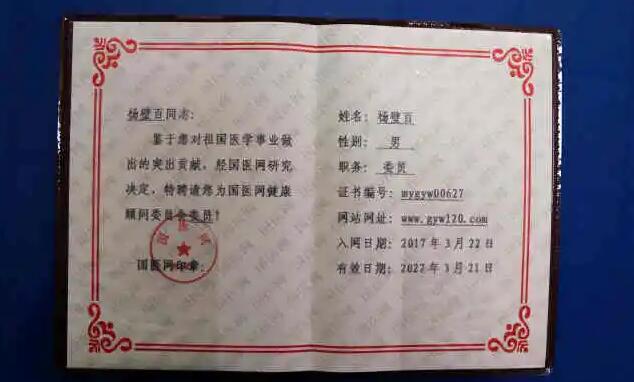 杨壁百同志:
鉴于您对祖国医学事业做
出的突出贡献,经国医网研究
决定,特聘请您为国医网健康
顾问委员会委员!
国医网
国医网印章:
姓名: 杨壁百
性别: 男
职务: 委员
证书编号: mygyw00627
网站网址: www.gyw120.com
入网日期: 2017年3月22日
有效日期: 2022年3月21日